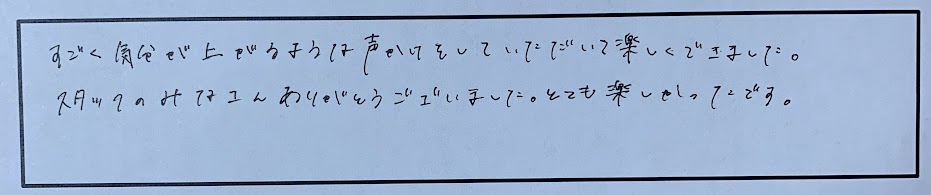 すごく気分が上がるような声かけをしていただいて楽しくできました。
スタッフのみなさんありがとうございました。とても楽しかったです。